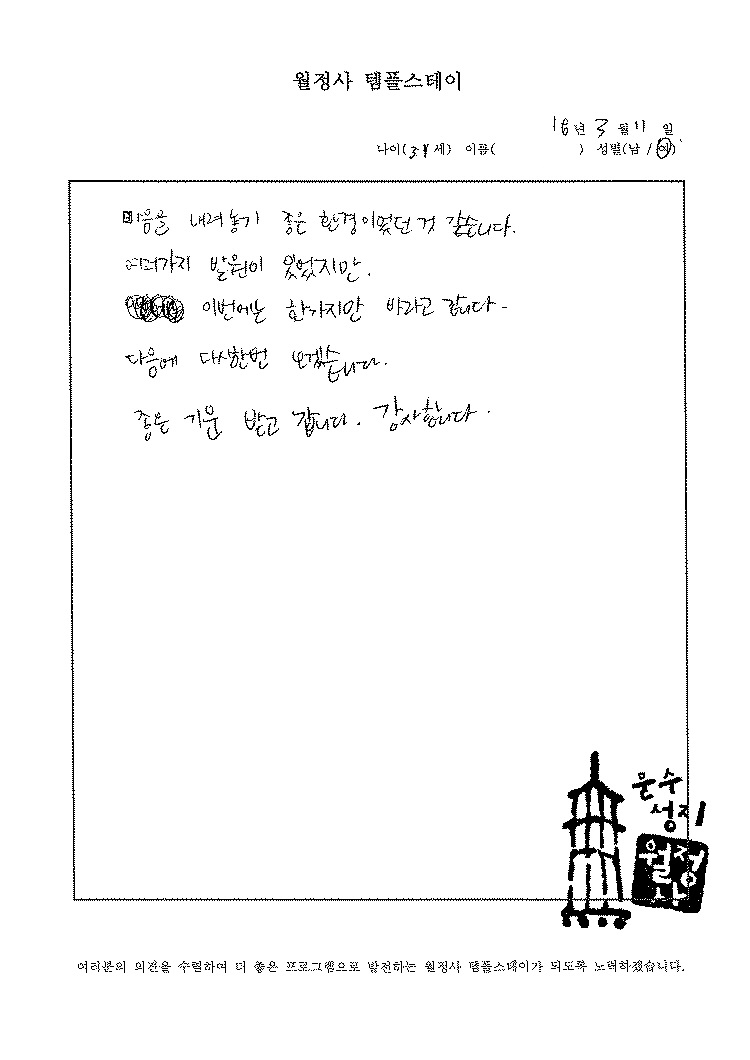 월정사 템플스테이
18년 3월 11일
나이(31세) 이름( ) 성별(남 / 여)
마음을 내려놓기 좋은 환경이었던 것 같습니다.
여러가지 발원이 있었지만.
이번에는 한가지만 바라고 갑니다.
다음에 다시한번 오겠습니다.
좋은 기운 받고 갑니다. 감사합니다.
문수
성지
월정
사
여러분의 의견을 수렴하여 더 좋은 프로그램으로 발전하는 월정사 템플스테이가 되도록 노력하겠습니다.